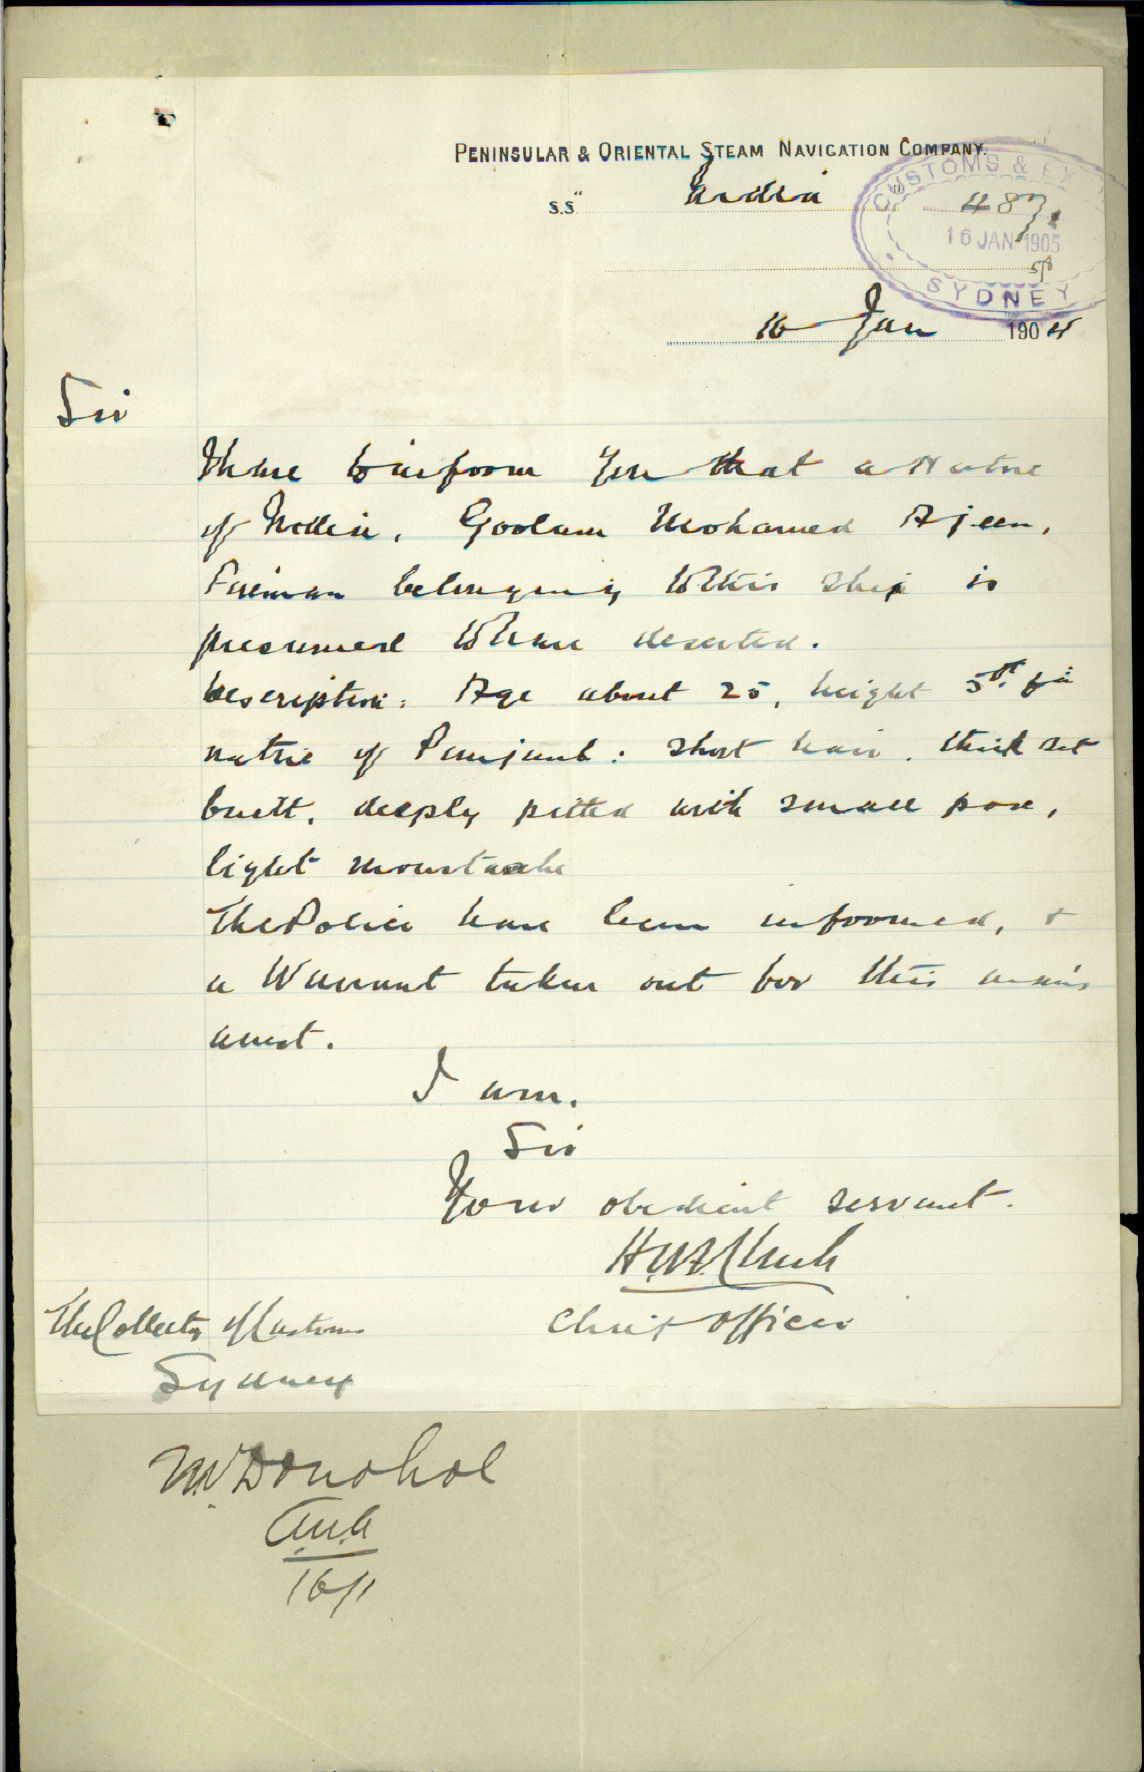 PENINSULAR & ORIENTAL STEAM NAVIGATION COMPANY.
S.S. "India
CUSTOMS & EX
487
16 JAN 1905
SYDNEY
16 Jan 1904
Sir
I have to inform you that a Native
of India, Goolam Mohamed Ajeen,
Fireman belonging to this ship is
presumed to have deserted.
Description: Age about 25, height 5ft 6in
native of Punjaub: short hair. thick set
built, deeply pitted with small pox,
light moustache
The Police have been informed, &
a Warrant taken out for this man's
arrest.
I am.
Sir
Your obedient servant.
Chief Officer
The Collector of Customs
Sydney
Mr Donohoe
16/1